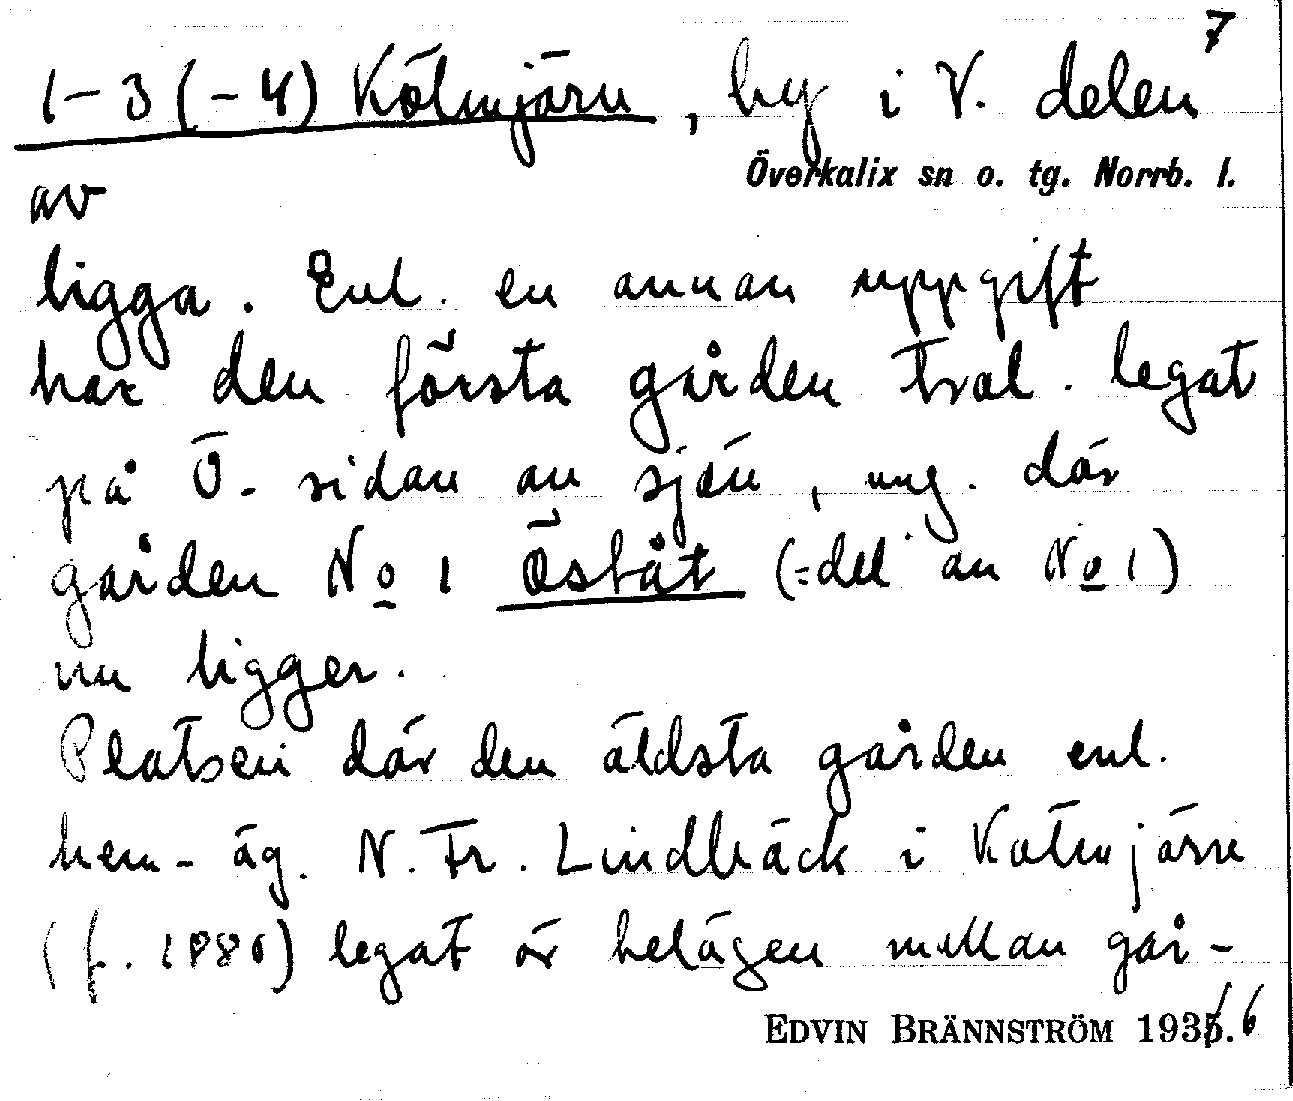 7
1-3 (-4) Kölmjärv, by i V. delen
Överkalix sn o. tg. Norrb. l.
av
ligga. Enl. en annan uppgift
har den första gården trol. legat
på Ö. sidan av sjön, ung. där
gården No 1 Öståt (=del av No 1)
nu ligger.
Platsen där den äldsta gården enl.
hem-äg. N. Fr. Lindbäck i Kölmjärv
(f. 1880) legat är belägen mellan går-
EDVIN BRÄNNSTRÖM 1935. 6